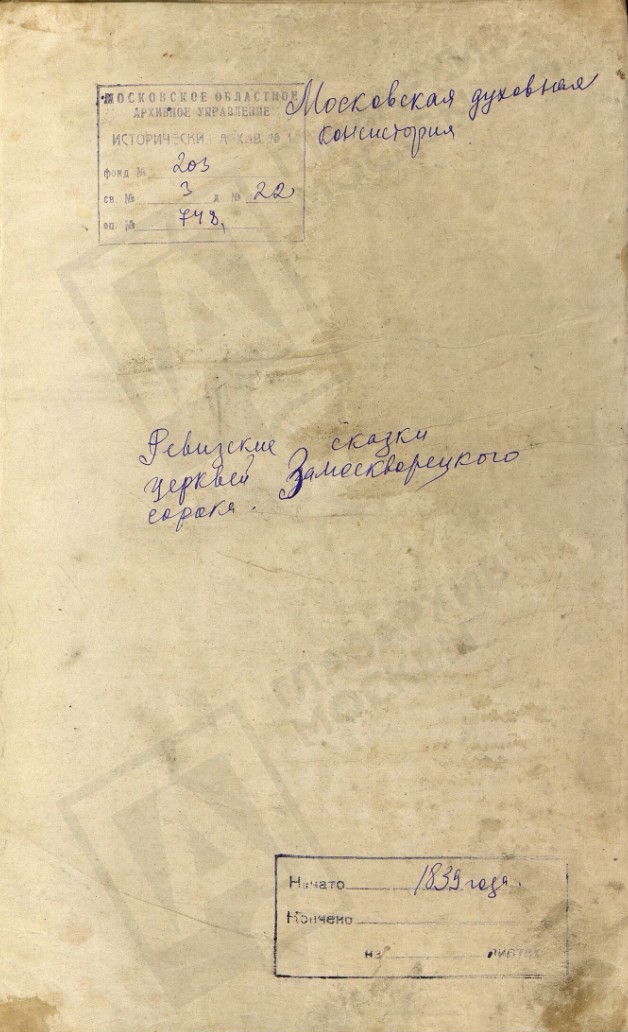 МОСКОВСКОЕ ОБЛАСТНОЕ
АРХИВНОЕ УПРАВЛЕНИЕ
ИСТОРИЧЕСКИЙ АРХИВ № 1
фонд № 203
св. № 3 д № 22
оп № 748,
Московская духовная
консистория
Ревизские сказки
церквей Замоскворецкого
сорока.
Начато 1839 года.
Кончено
на листах